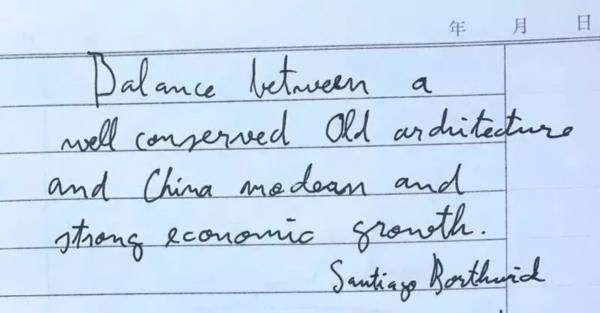 年 月 日
Balance between a
well conserved Old architecture
and China modean and
strong economic growth.
Santiago